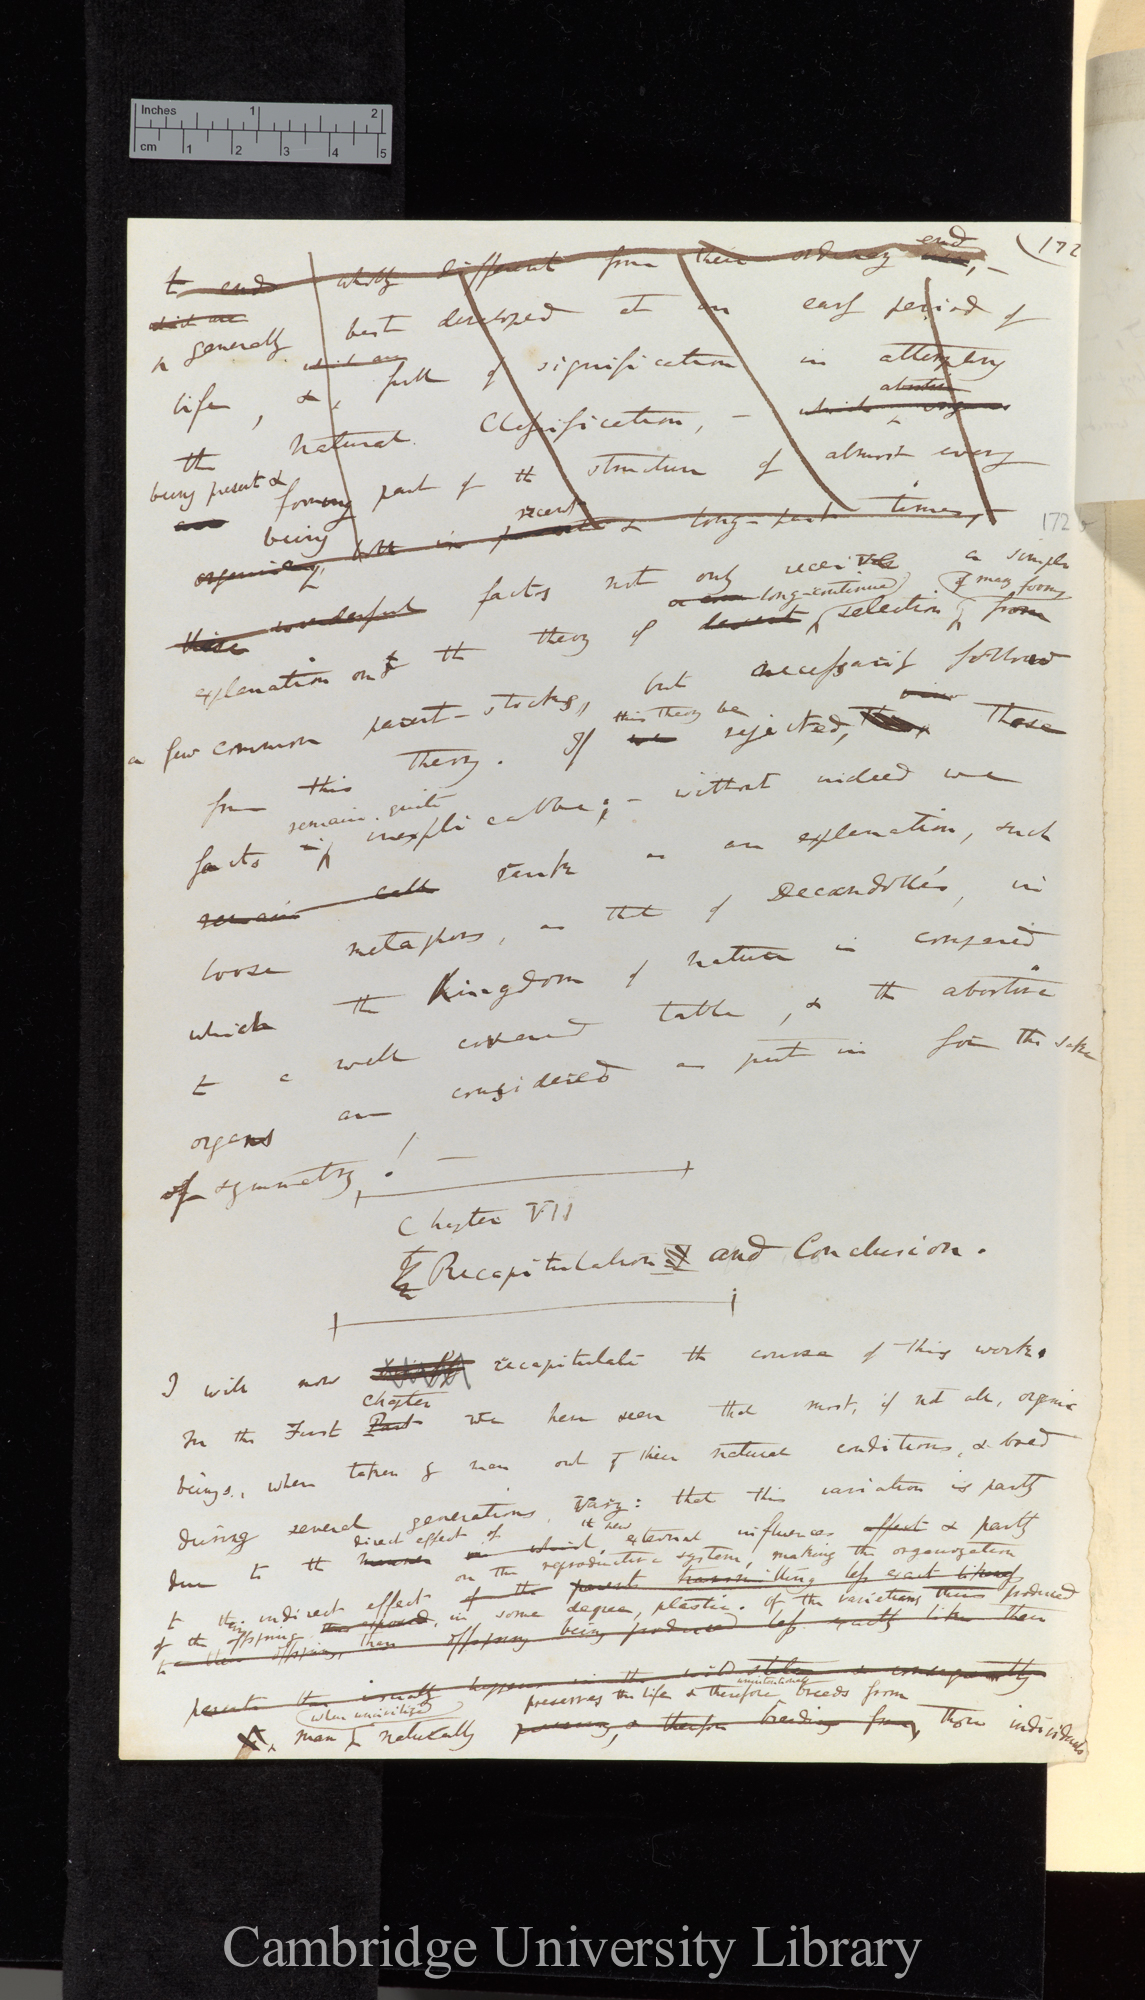 Inches 1 2
cm 1 2 3 4 5
(172
end
to ends wholly different from their ordinary
which are
& generally best developed at an early period of
which are
life, & full of signification in attempting
abortive
the natural classification, — which organs
being present &
are forming part of the structure of almost every
being recent
organism, both in present & long-past times,
172
these wonderful facts not only receive a simple
long-continued of many forms
explanation on the theory of descent selection from
a few common parent-stocks, but necessarily follow
this theory be
from this theory. If rejected, these
remain quite
facts inexplicable; — without indeed we
remain rank as an explanation, such
loose metaphors, as that of Decandolle's, in
which the Kingdom of nature is compared
to a well covered table, & the abortive
organs are considered as put in for the sake
of symmetry! —
Chapter VII
Recapitulation and Conclusion.
I will now recapitulate the course of this work.
Chapter
In the First Part we have seen that most, if not all, organic
beings, when taken by man out of their natural conditions, & bred
during several generations, vary: that this variation is partly
direct effect of the new
due to the external influences effect & partly
on the reproductive system, making the organization
to the indirect effect of the parents transmitting less exact
of the offspring in some degree, plastic. Of the variations thus produced
to their offspring, than offspring being produced less exactly like their
parents than usually happens in the wild state & consequently
unintentionally
when uncivilized preserves the life & therefore breeds from
man naturally preserving, & therefore breeding from, those individuals
Cambridge University Library